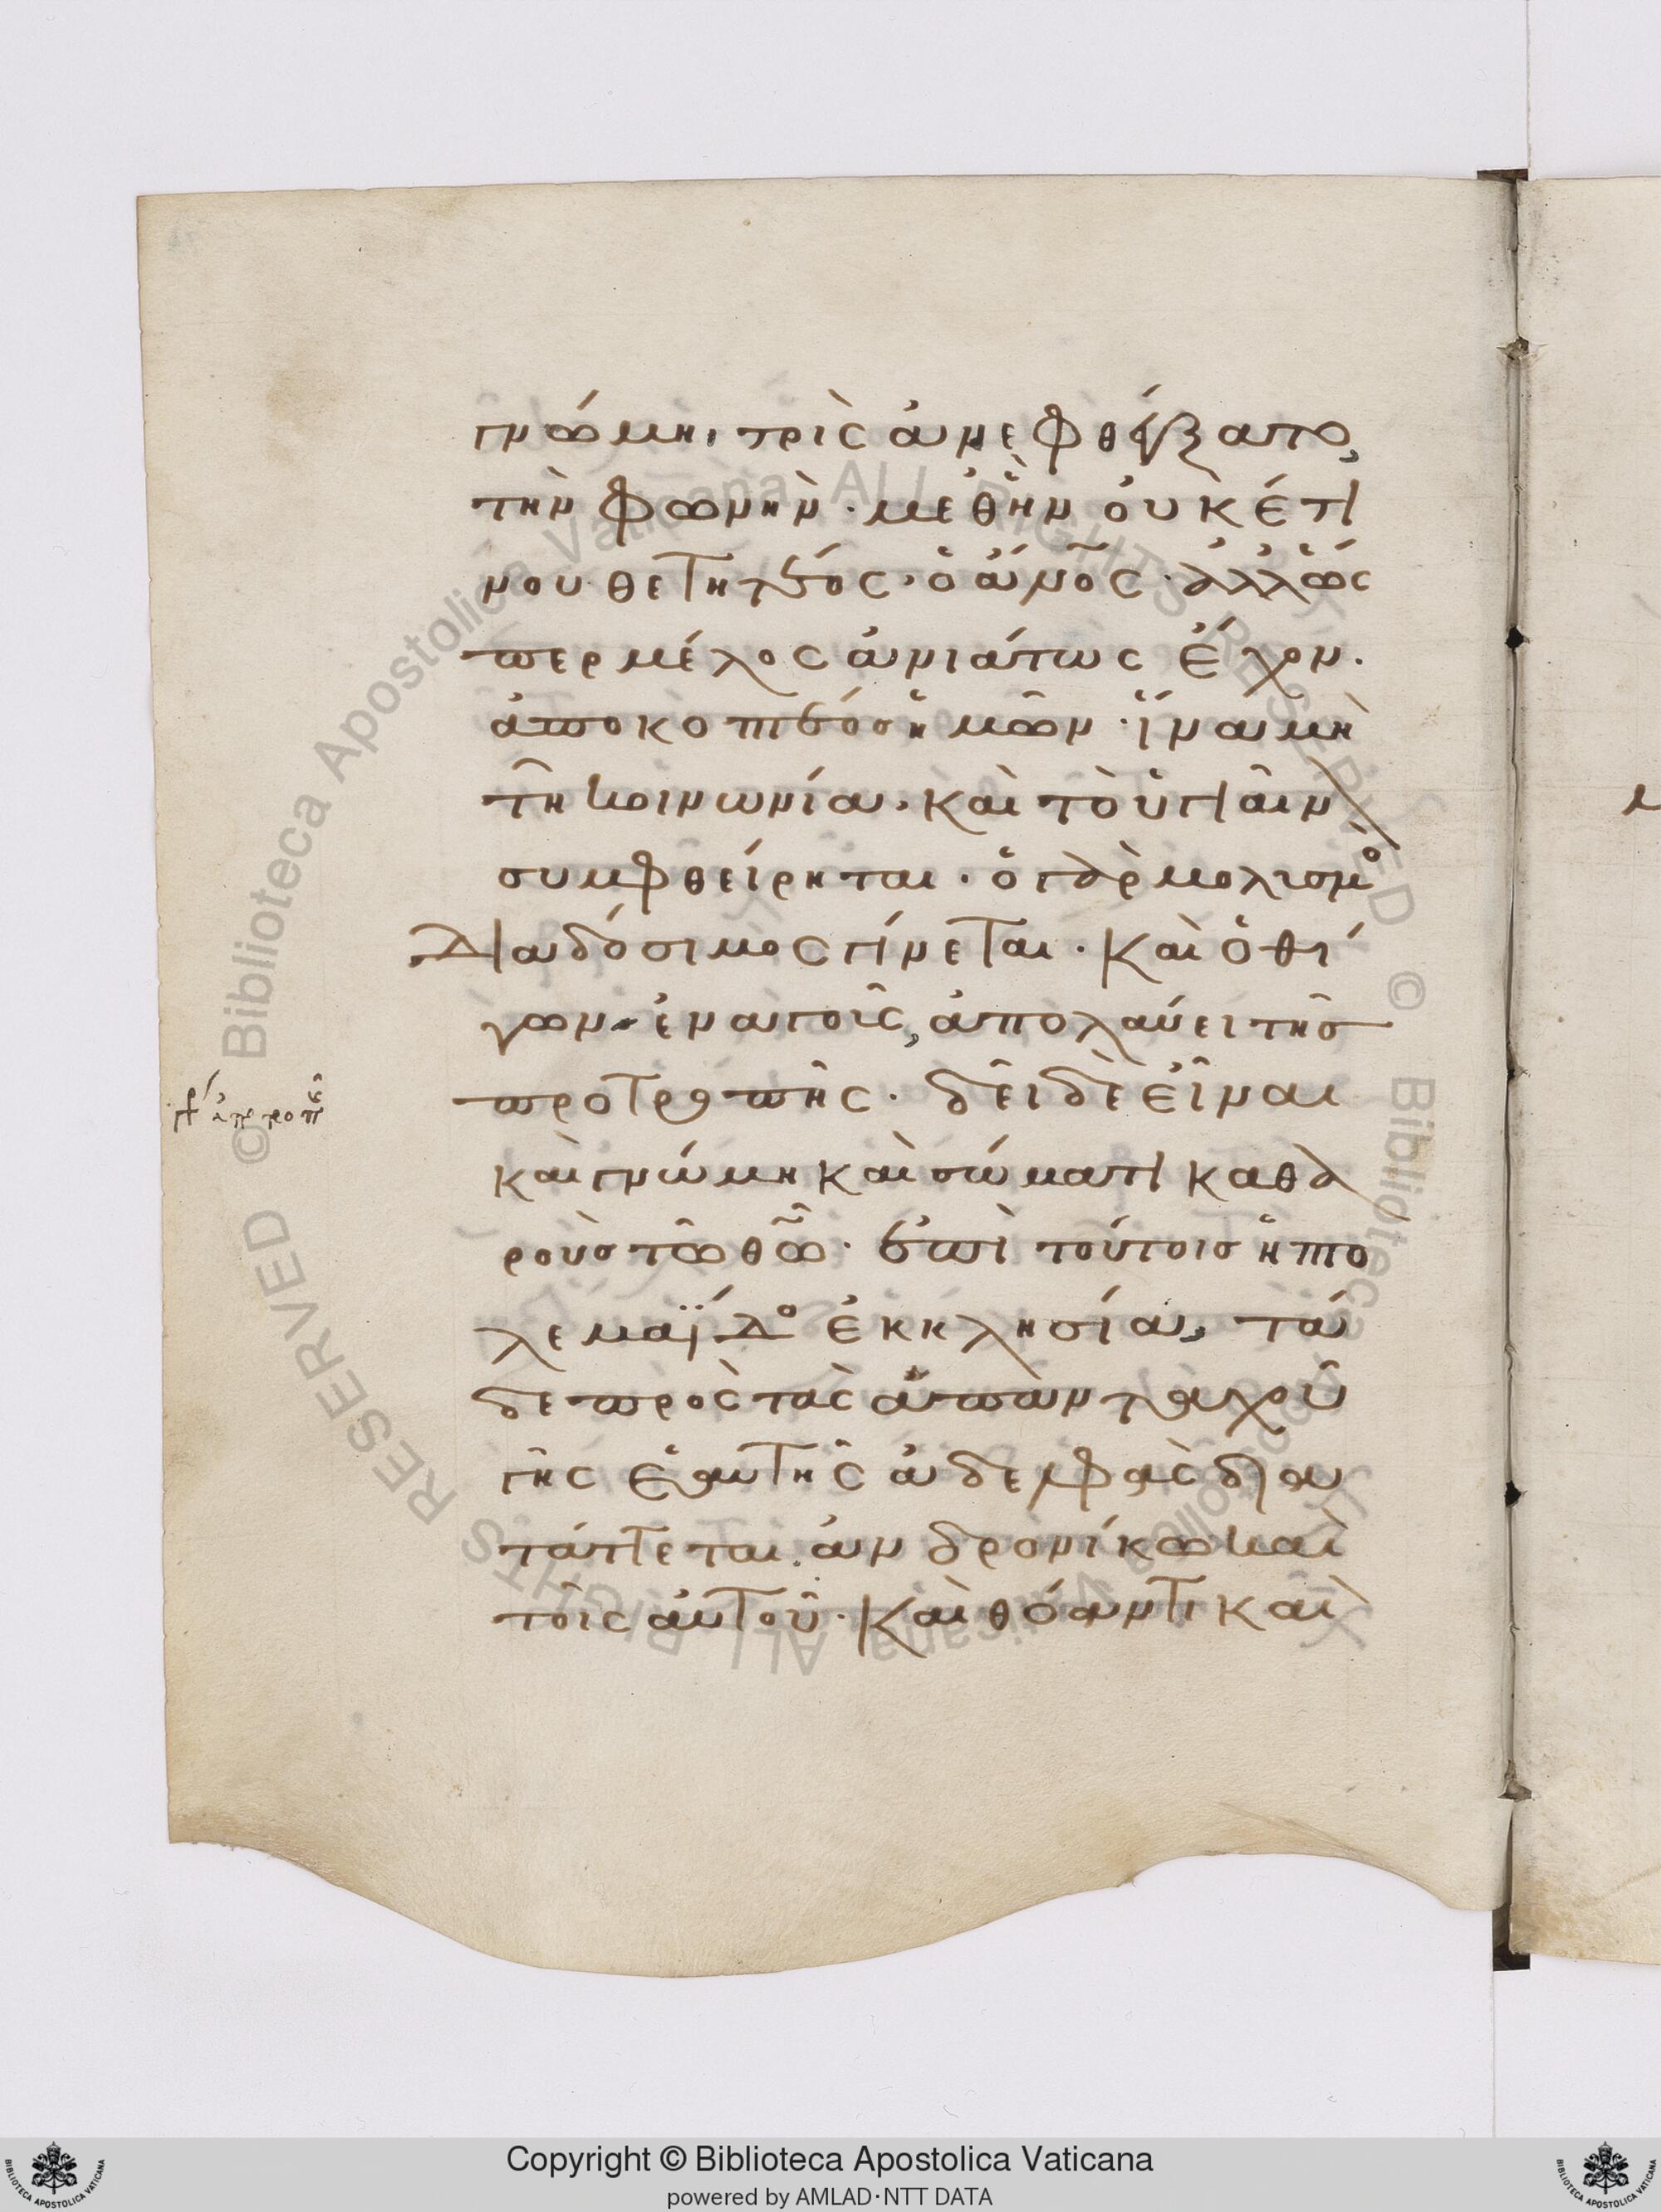 γνώμηι τρὶς ἀνεφθέγξατο,
τὴν φωνὴν· μεθ ἣν οὐκέτι
νουθετητέος· ὁ ἄνος· ἀλλ ὥς
περ μέλος ἀνιάτως ἔχον·
ἀποκοπτέος ἡμῶν· ἵνα μὴ
τῆ κοινωνία· καὶ τὸ ὑγιαῖν
συμφθείρηται· ὁ γὰρ μολυσμὸ
διαδόσιμος γίνεται· καὶ ὁ θι
γὼν ἐναγοῦς, ἀπολαύει τῆσ
προτροπῆς· δεῖ δὲ εἶναι
γρ ἀπο τροπῆς
καὶ γνώμη καὶ σώματι καθα
ροὺσ τῶ θῶ· ἐπὶ τούτοισ ἡ πτο
λεμαΐδο ἐκκλησία, τά
δε πρὸς τὰς ἁπανταχοῦ
γῆς ἑαυτῆς ἀδελφὰς δια
τάττεται ἀνδρονίκω καὶ
τοῖς αὐτοῦ· καὶ θόαντι καὶ
Copyright © Biblioteca Apostolica Vaticana
powered by AMLAD·NTT DATA